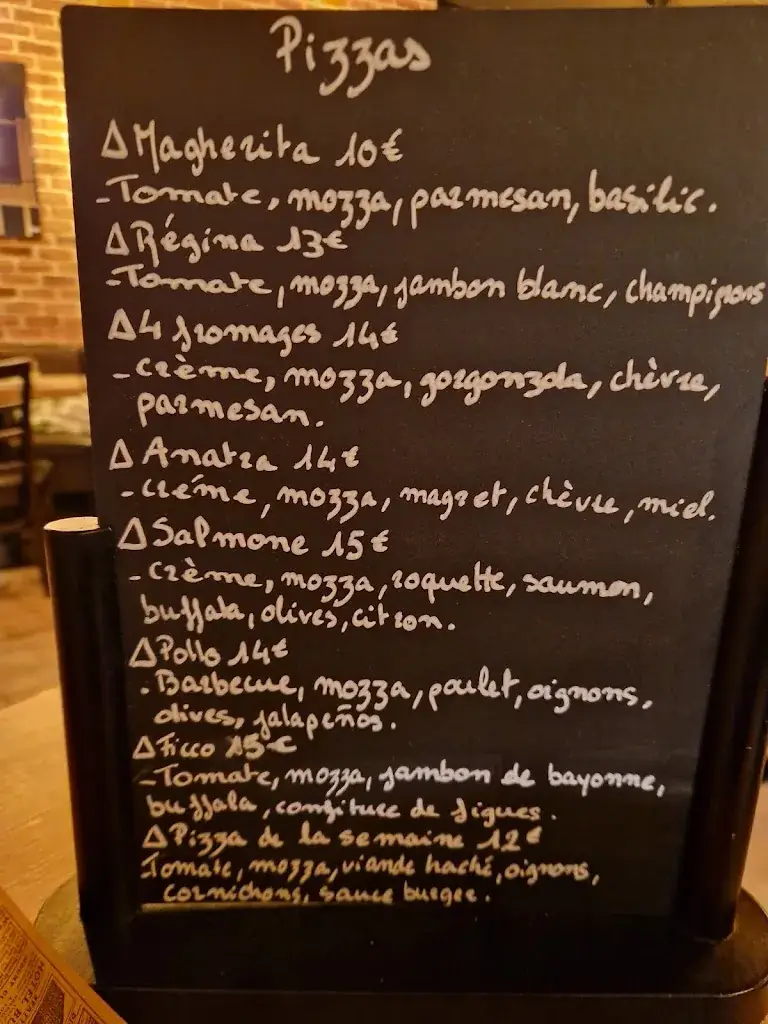 Pizzas
Δ Magherita 10€
- Tomate, mozza, parmesan, basilic.
Δ Régina 13€
- Tomate, mozza, jambon blanc, champignons
Δ 4 fromages 14€
- Crème, mozza, gorgonzola, chèvre,
parmesan.
Δ Anatra 14€
- Crème, mozza, magret, chèvre, miel.
Δ Salmone 15€
- Crème, mozza, roquette, saumon,
buffala, olives, citron.
Δ Pollo 14€
- Barbecue, mozza, poulet, oignons,
olives, jalapeños.
Δ Ficco 15€
- Tomate, mozza, jambon de bayonne,
buffala, confiture de figues.
Δ Pizza de la semaine 12€
Tomate, mozza, viande haché, oignons,
cornichons, sauce burger.